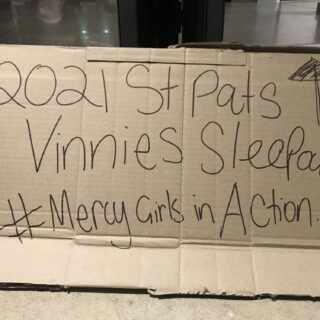 2021 St Pats
Vinnies
# Mercy Girls in Action.